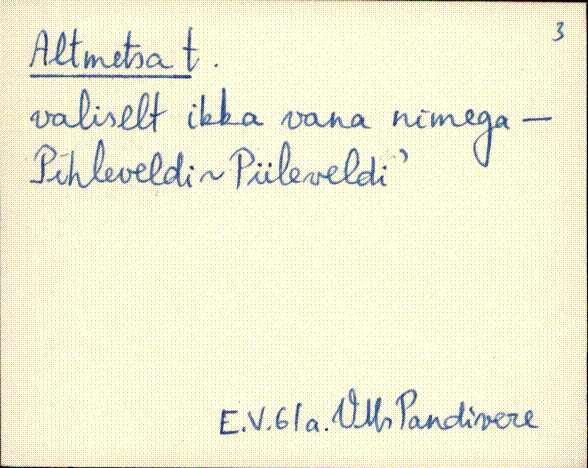 3
Altmetsa t.
valiselt ikka vana nimega —
Pihleveldi ~ Piileveldi'
E.V. 61a. VMr Pandivere